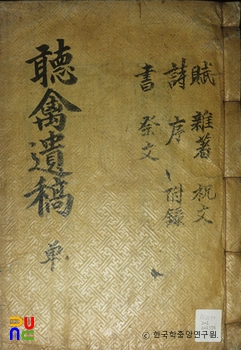 聽禽遺稿
單
賦 雜著 祝文
詩 序 附錄
書 祭文
© 한국학중앙연구원